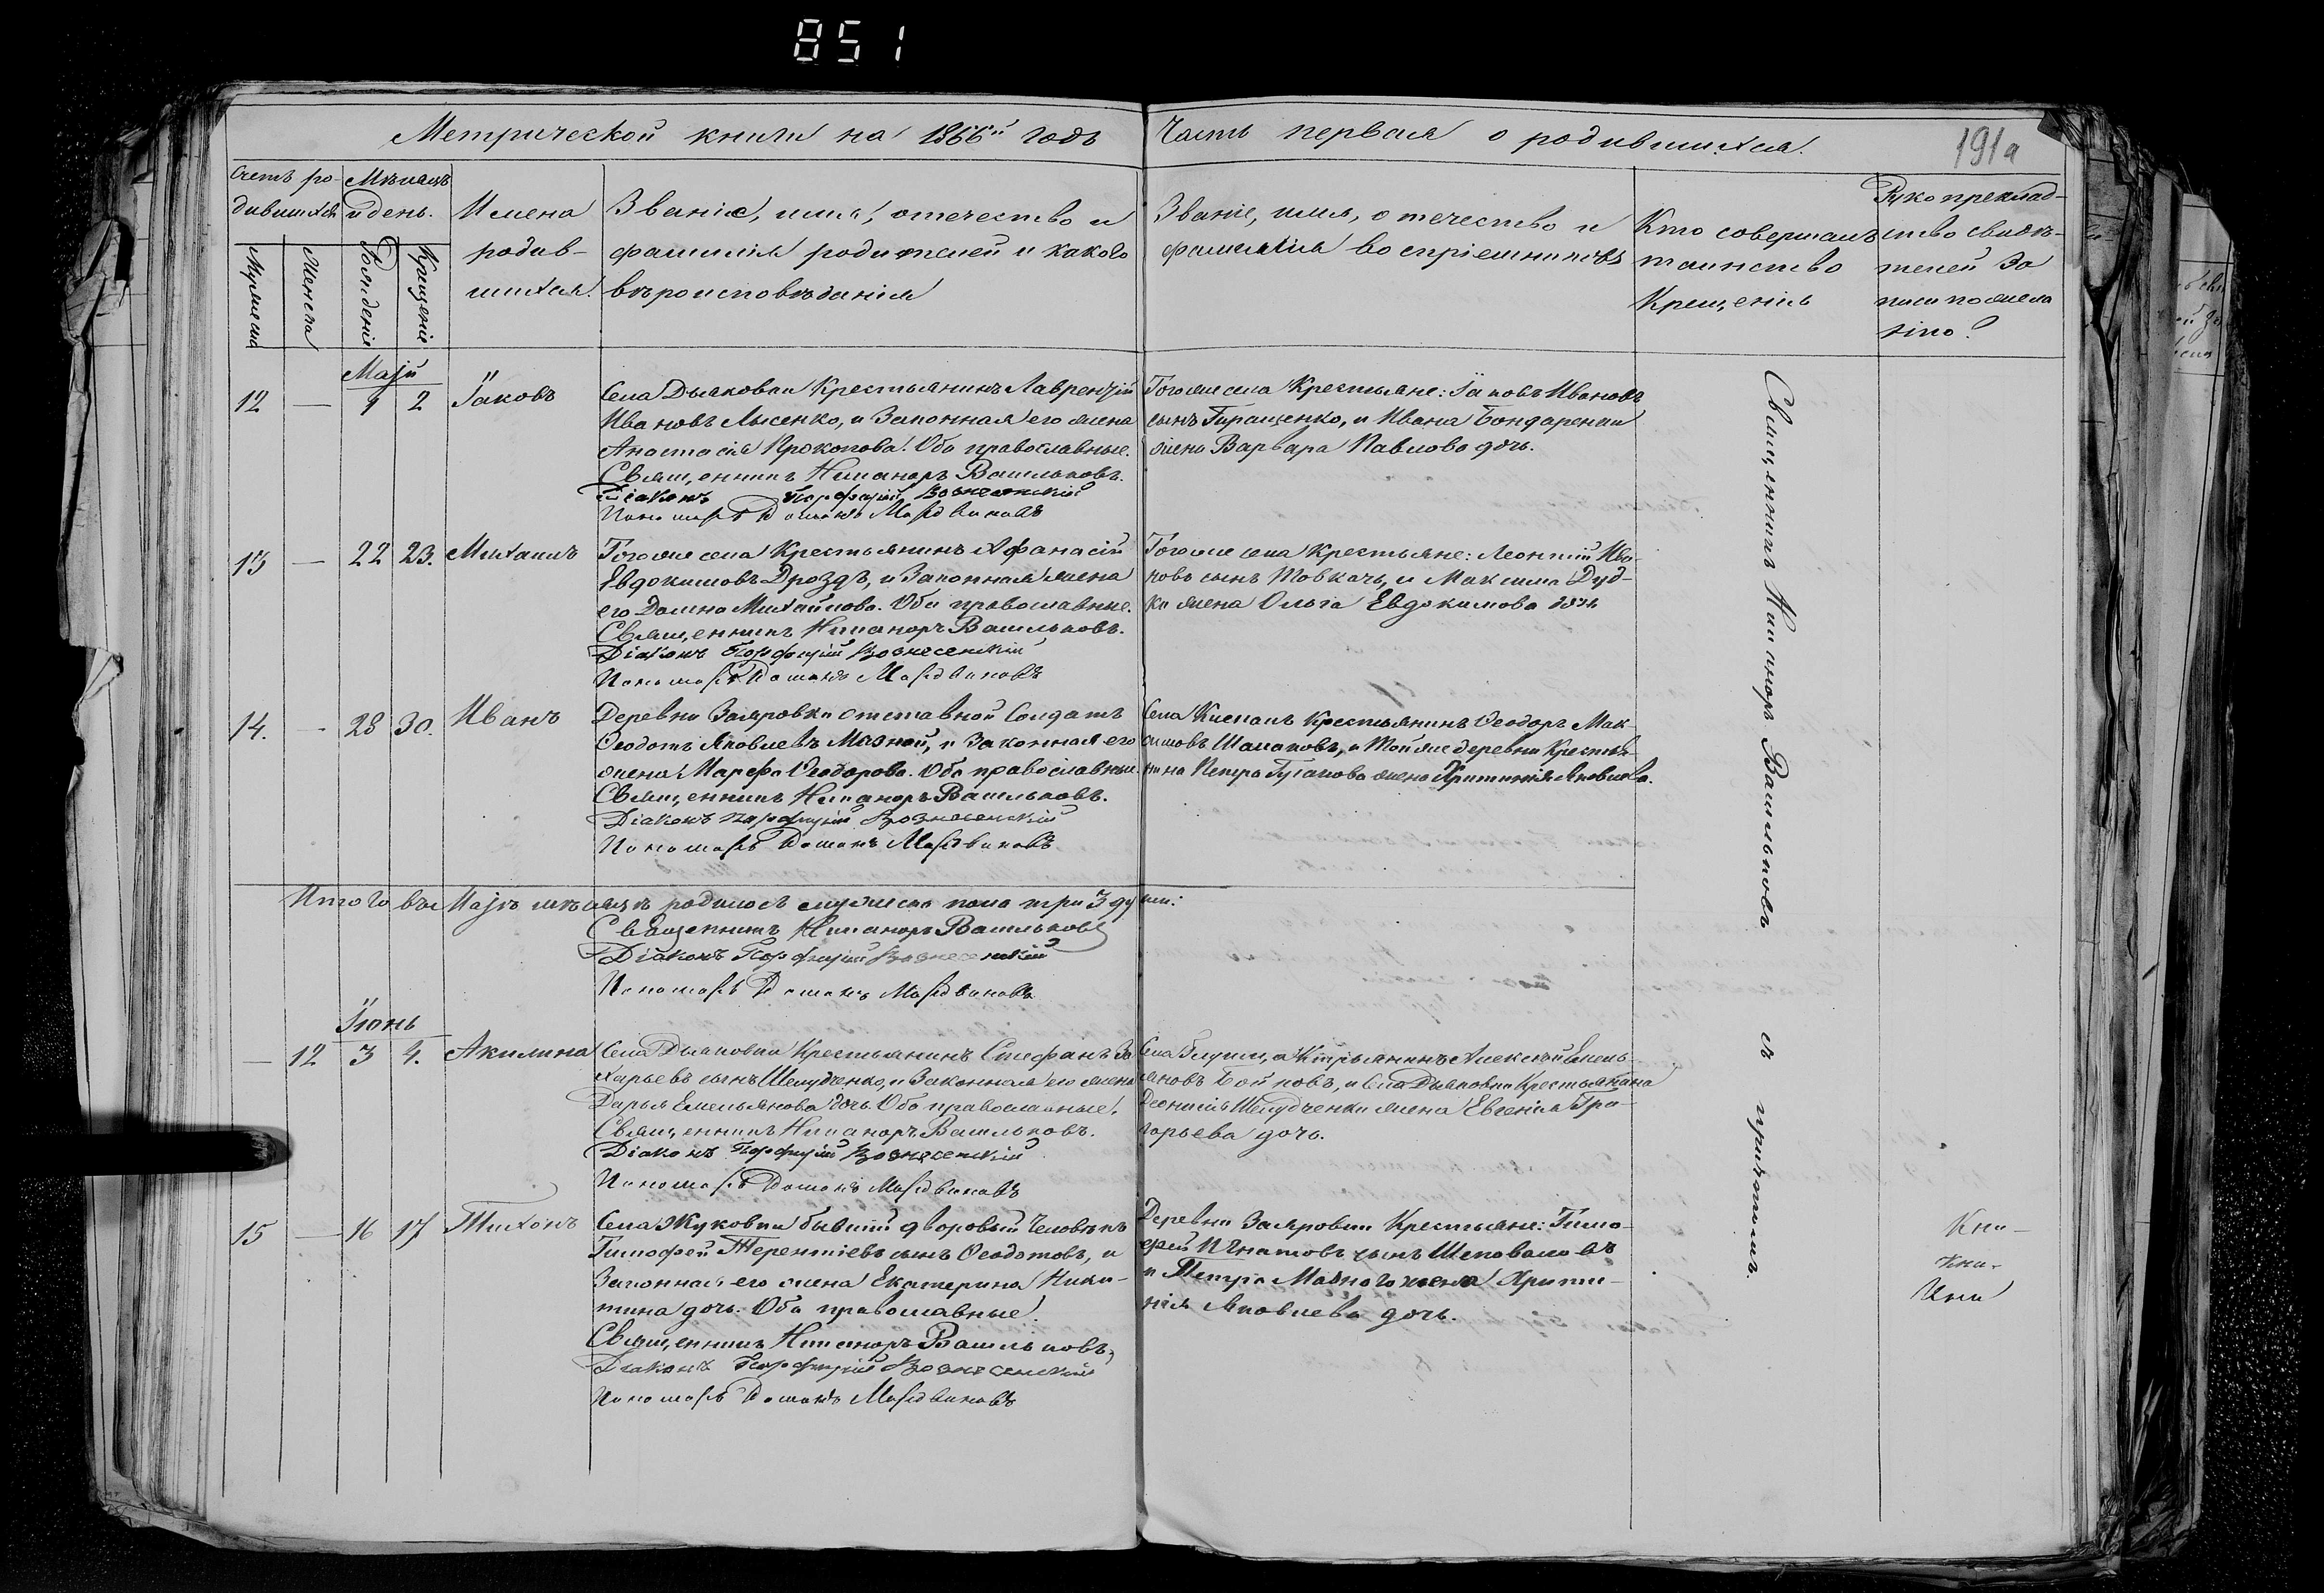 851
Метрической книги на 1866й годъ
Часть первая о родившихся.
191а
Счетъ ро-
дившихся
Мужеска
Женска
Мѣсяцъ
и день.
Рожденія
Крещенія
Имена
родив-
шихся.
Званіе, имя, отечество и
фамилія родителей и какого
вѣроисповѣданія
Званіе, имя, отечество и
фамилія воспріемниковъ
Кто совершалъ
таинство
Крещенія
Рукоприклад-
ство свидѣ-
телей за
писи по жела
нію?
Маій
12 — 1 2 Іаковъ
Села Дьяковки Крестьянинъ Лаврентій
Ивановъ Лысенко, и Законная его жена
Анастасія Прокопова. Оба православные.
Священникъ Никаноръ Васильковъ.
Діаконъ Порфирій Вознесенскій
Пономарь Мордвиновъ
Тогоже села Крестьяне: Іаковъ Ивановъ
сынъ Гиращенко, и Ивана Бондаренки
жена Варвара Павлова дочь.
13 — 22 23. Михаилъ
Тогоже села Крестьянинъ Афанасій
Евдокимовъ Дроздъ, и Законная жена
его Домна Михайлова. Оба православные.
Священникъ Никаноръ Васильковъ.
Діаконъ Порфирій Вознесенскій
Пономарь Мордвиновъ
Тогоже села Крестьяне: Леонтій Ива-
новъ сынъ Товкачь, и Максима Дуд-
ки жена Ольга Евдокимова дочь
14. - 28 30. Иванъ
Деревни Заяровки отставной Солдатъ
Ѳеодотъ Яковлевъ Мазной, и Законная его
жена Марфа Ѳеодорова. Оба православные.
Священникъ Никаноръ Васильковъ.
Діаконъ Порфирій Вознесенскій
Пономарь Мордвиновъ
Села Крестьянинъ Ѳеодоръ Мак-
симовъ и тойже деревни Крестья-
нина Петра жена Христинія Яковлева.
Итого въ Маіѣ мѣсяцѣ родилось мужеска пола три 3 души:
Священникъ Никаноръ Васильковъ
Діаконъ Порфирій Вознесенскій
Пономарь Мордвиновъ
Іюнь
— 12 3 4. Акилина
Села Дьяковки Крестьянинъ Стефанъ За
харьевъ сынъ Шелудченко, и Законная его жена
Дарья Емельянова дочь. Оба православные.
Священникъ Никаноръ Васильковъ.
Діаконъ Порфирій Вознесенскій
Пономарь Мордвиновъ
Села Крестьянинъ Алексѣй Емель-
яновъ Бойковъ, и Села Дьяковки Крестьянина
Деонисія Шелудченки жена Евгенія Гри-
горьева дочь.
15 — 16 17 Тихонъ
Села Жуковки бывшій дворовый Человѣкъ
Тимофей Терентіевъ сынъ Ѳеодотовъ, и
Законная его жена Екатерина Ники-
тина дочь. Оба православные.
Священникъ Никаноръ Васильковъ,
Діаконъ Порфирій Вознесенскій
Пономарь Мордвиновъ
Деревни Заяровки Крестьяне: Тимо-
фей Игнатовъ сынъ Шеповаловъ
и Петра Мазного жена Христи-
нія Яковлева дочь.
Священникъ Никаноръ Васильковъ съ причтомъ.